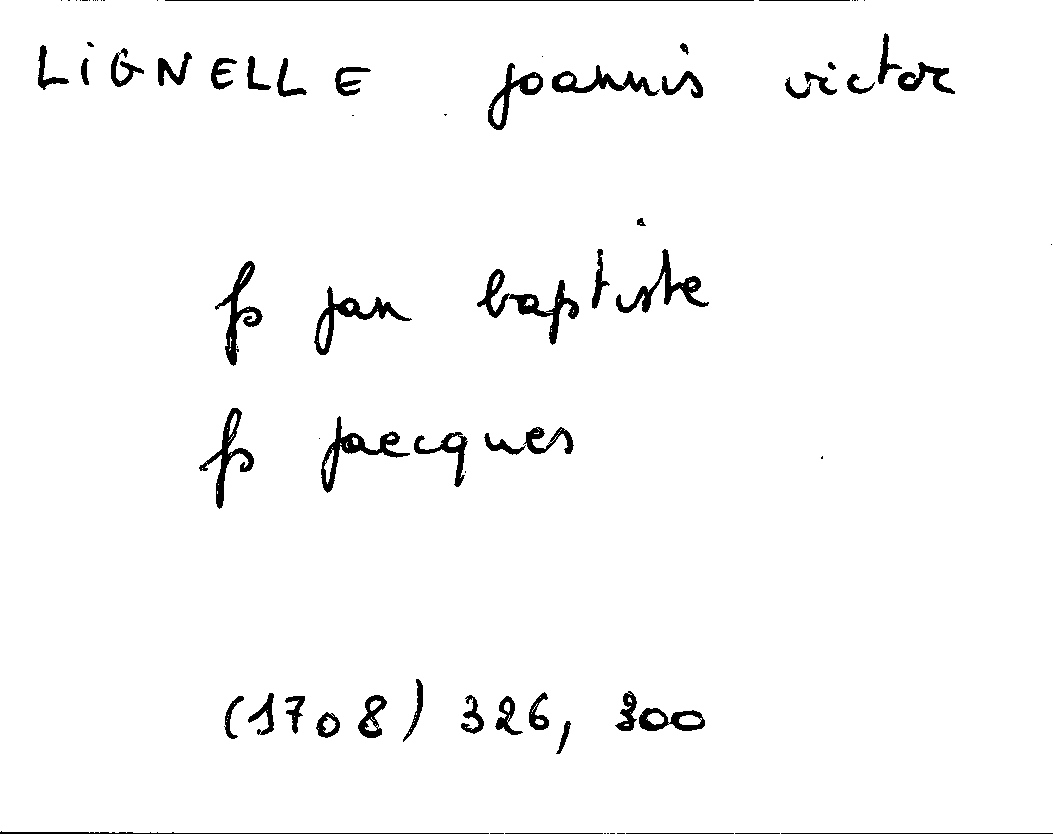 LIGNELLE joannis victor
fs jan baptiste
fs jaecques
(1708) 326, 300